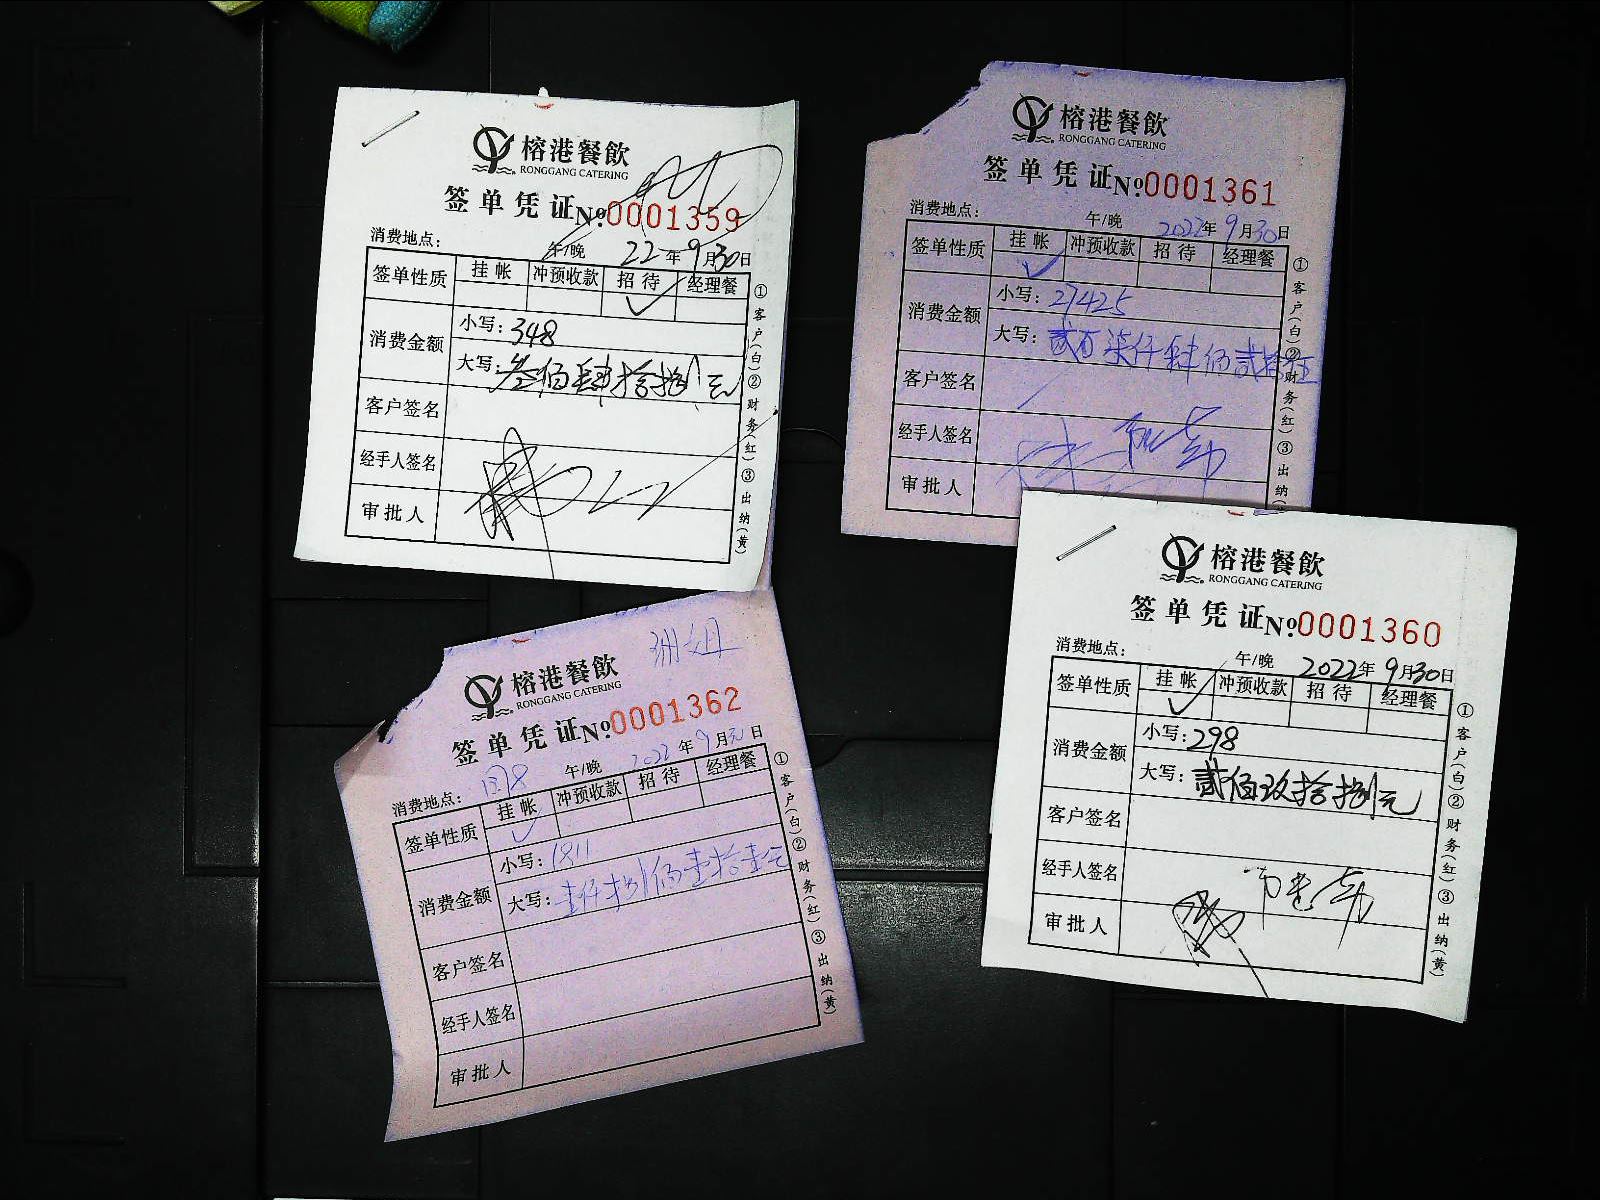 榕港餐飲
RONGGANG CATERING
签单凭证 №0001359
消费地点： 午/晚 22年9月30日
签单性质 挂帐 冲预收款 招待 经理餐
✓
消费金额 小写：348
大写：叁佰肆拾捌元
客户签名
经手人签名
审批人
①客户(白)②财务(红)③出纳(黄)
榕港餐飲
RONGGANG CATERING
签单凭证 №0001361
消费地点： 午/晚 2022年9月30日
签单性质 挂帐 冲预收款 招待 经理餐
✓
消费金额 小写：27425
大写：贰万柒仟肆佰贰拾伍
客户签名
经手人签名
审批人
①客户(白)②财务(红)③出纳
榕港餐飲
RONGGANG CATERING
签单凭证 №0001362
消费地点： 午/晚 2022年9月 日
签单性质 挂帐 冲预收款 招待 经理餐
✓
消费金额 小写：1811
大写：壹仟捌佰壹拾壹元
客户签名
经手人签名
审批人
①客户(白)②财务(红)③出纳(黄)
榕港餐飲
RONGGANG CATERING
签单凭证 №0001360
消费地点： 午/晚 2022年9月30日
签单性质 挂帐 冲预收款 招待 经理餐
✓
消费金额 小写：298
大写：贰佰玖拾捌元
客户签名
经手人签名
审批人
①客户(白)②财务(红)③出纳(黄)